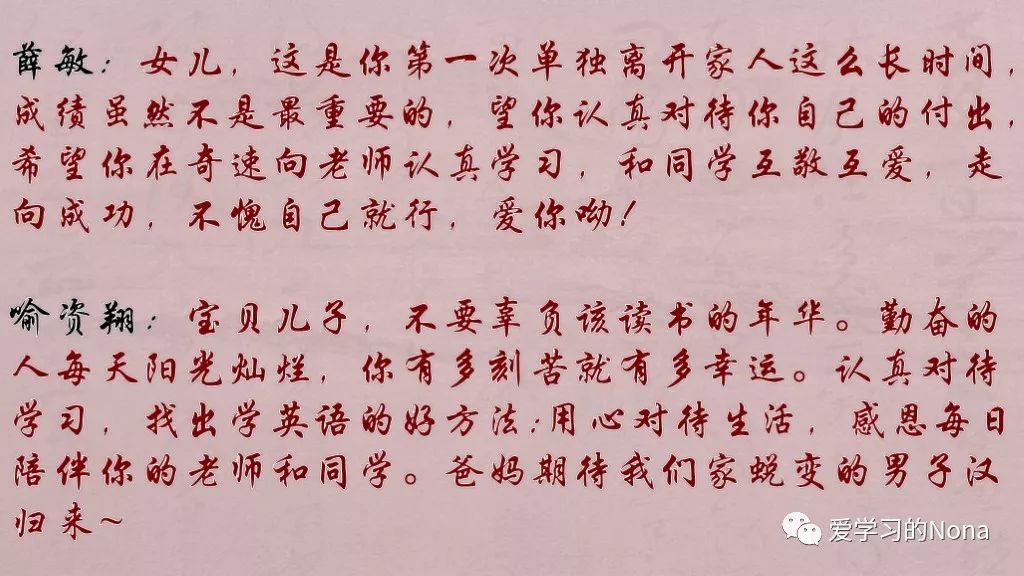 薛敏：女儿，这是你第一次单独离开家人这么长时间，
成绩虽然不是最重要的，望你认真对待你自己的付出，
希望你在奇速向老师认真学习，和同学互敬互爱，走
向成功，不愧自己就行，爱你呦！
喻资翔：宝贝儿子，不要辜负该读书的年华。勤奋的
人每天阳光灿烂，你有多刻苦就有多幸运。认真对待
学习，找出学英语的好方法;用心对待生活，感恩每日
陪伴你的老师和同学。爸妈期待我们家蜕变的男子汉
归来~
爱学习的Nona